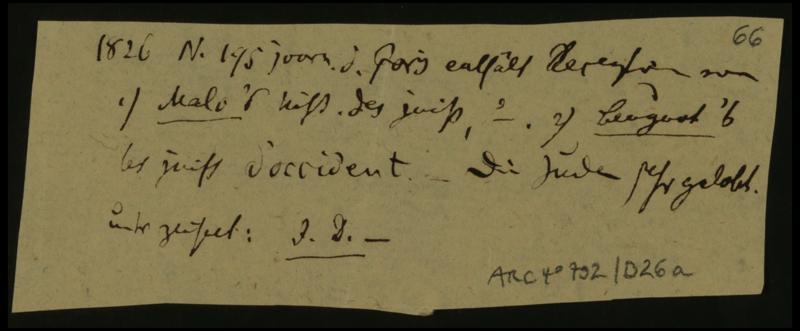 66
1826 N. 195 journ. d. Paris enthält Recension von
1) Malo's hist. des juifs, 2) Beugnot's
les juifs d'occident. — Die Juden sehr gelobt.
unterzeichnet: J. D. —
ARC 4° 792/D26a